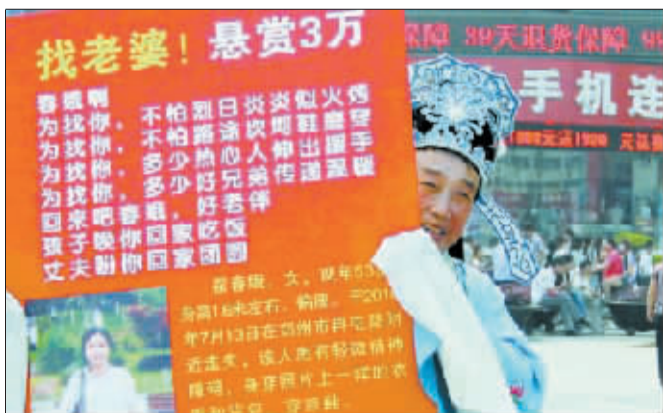 找老婆！悬赏3万
春娥啊
为找你，不怕烈日炎炎似火烤
为找你，不怕路途坎坷鞋磨穿
为找你，多少热心人伸出援手
为找你，多少好兄弟传递温暖
回来吧春娥，好老伴
孩子唤你回家吃饭
丈夫盼你回家团圆
春娥，女，现年53岁
身高1.6米左右，偏瘦，于201
年7月13日在郑州市
近走失，该人患有轻微精神
障碍，身穿照片上一样的衣
保障 39天退货保障 99
手机连